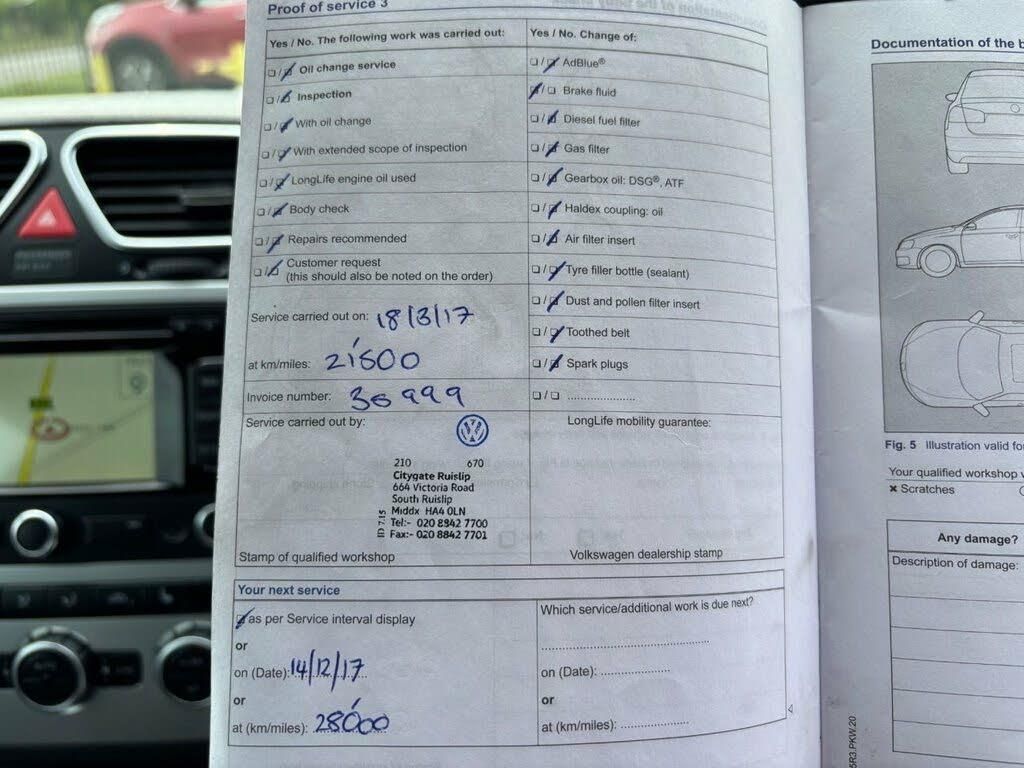 Proof of service 3
Yes / No. The following work was carried out:
Oil change service
Inspection
With oil change
With extended scope of inspection
LongLife engine oil used
Body check
Repairs recommended
Customer request
(this should also be noted on the order)
Service carried out on: 18/3/17
at km/miles: 21500
Invoice number:
Service carried out by:
210 670
Citygate Ruislip
664 Victoria Road
South Ruislip
Middx HA4 0LN
Tel:- 020 8842 7700
Fax:- 020 8842 7701
ID 7.15
Stamp of qualified workshop
Yes / No. Change of:
AdBlue®
Brake fluid
Diesel fuel filter
Gas filter
Gearbox oil: DSG®, ATF
Haldex coupling: oil
Air filter insert
Tyre filler bottle (sealant)
Dust and pollen filter insert
Toothed belt
Spark plugs
LongLife mobility guarantee:
Volkswagen dealership stamp
Your next service
as per Service interval display
or
on (Date): 14/12/17
or
at (km/miles): 28000
Which service/additional work is due next?
on (Date):
or
at (km/miles):
5R3.PKW.20
Documentation of the b
Fig. 5 Illustration valid fo
Your qualified workshop
× Scratches
Any damage?
Description of damage: